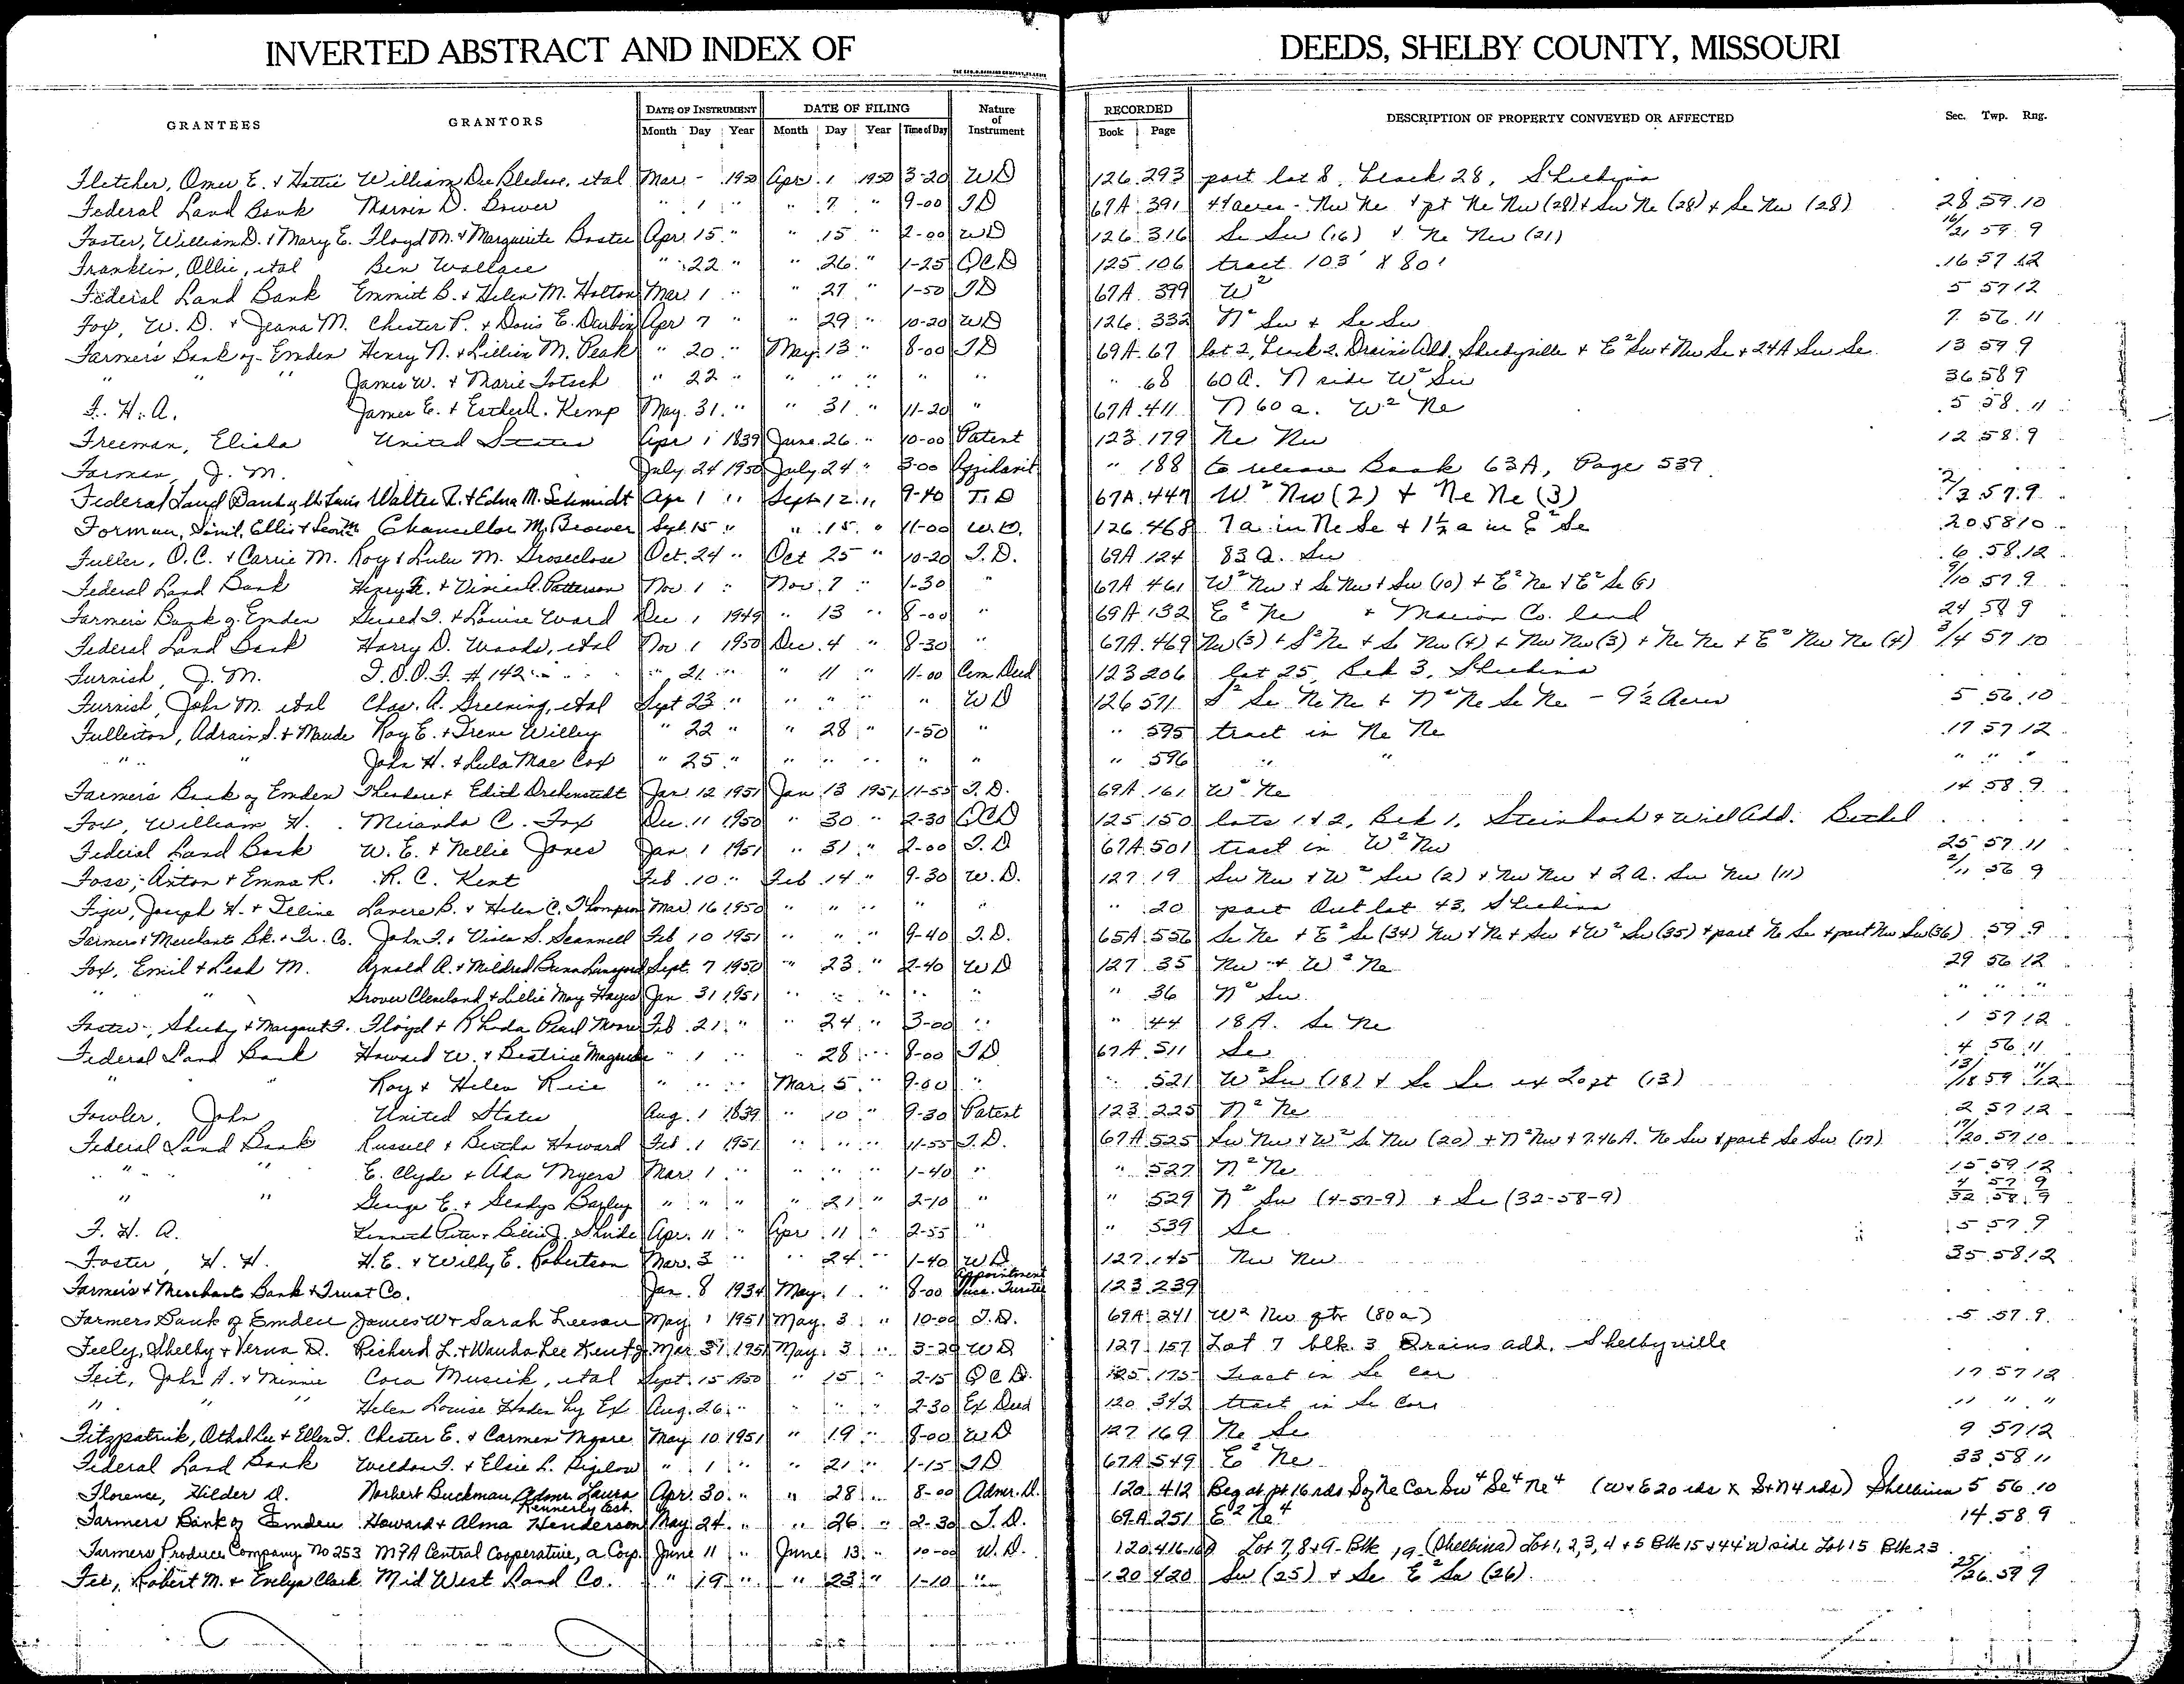 INVERTED ABSTRACT AND INDEX OF DEEDS, SHELBY COUNTY, MISSOURI
GRANTEES GRANTORS DATE OF INSTRUMENT DATE OF FILING Nature of Instrument RECORDED DESCRIPTION OF PROPERTY CONVEYED OR AFFECTED Sec. Twp. Rng.
Month Day Year Month Day Year Time of Day Book Page
Fletcher, Omer E. & Hattie William Dee Bledsoe, etal Mar - 1950 Apr 1 1950 3-20 WD 126 293 part lot 8, Block 28, Shelbina
Federal Land Bank Marvin D. Bower " 1 " " 7 " 9-00 TD 67A 391 acres - Nw Ne & pt Ne Nw (28) & Sw Ne (28) & Se Nw (28) 28 59 10
Foster, William D. & Mary E. Floyd M. & Marguerite Baster Apr 15 " " 15 " 2-00 WD 126 316 Se Sw (16) & Ne Nw (21) 16/21 59 9
Franklin, Ollie, etal Ben Wallace " 22 " " 26 " 1-25 QCD 125 106 tract 103' X 80' 16 57 12
Federal Land Bank Emmitt B. & Helen M. Holton Mar 1 " " 27 " 1-50 TD 67A 399 W² 5 57 12
Fox, W. D. & Jeana M. Chester P. & Doris E. Durbin Apr 7 " " 29 " 10-20 WD 126 332 N² Sw & Se Sw 7 56 11
Farmers Bank of Emden Henry N. & Lillian M. Peak " 20 " May 13 " 8-00 TD 69A 67 lot 2, Block 2, Drains Add. Shelbyville & E² Sw & Nw Se & 24A Sw Se 13 59 9
" " " James W. & Marie Totsch " 22 " " " " " " " 68 60 A. N side W² Sw 36 58 9
F. H. A. James E. & Esther L. Kemp May 31 " " 31 " 11-20 " 67A 411 N 60 a. W² Ne 5 58 11
Freeman, Elisha United States Apr 1 1839 June 26 " 10-00 Patent 123 179 Ne Nw 12 58 9
Forman, J. M. July 24 1950 July 24 " 3-00 Affidavit " 188 to release Book 63A, Page 539
Federal Land Bank of St Louis Walter R. & Edna M. Schmidt Apr 1 " Sept 12 " 9-40 T.D 67A 447 W² Nw (2) & Ne Ne (3) 2/3 57 9
Forman, Ellis & Leon M. Chancellor M. Brower Sept 15 " " 15 " 11-00 W.D. 126 468 7 a in Ne Se & 1½ a in E² Se 20 58 10
Fuller, O.C. & Carrie M. Roy & Lulu M. Groseclose Oct. 24 " Oct 25 " 10-20 T.D. 69A 124 83 A. Sw 6 58 12
Federal Land Bank Henry H. & Vivian A. Patterson Nov. 1 " Nov. 7 " 1-30 " 67A 461 W² Nw & Se Nw & Sw (10) & E² Ne & E² Se (9) 9/10 57 9
Farmers Bank of Emden Gerald T. & Louise Ward Dec 1 1949 " 13 " 8-00 " 69A 132 E² Ne & Marion Co. land 24 58 9
Federal Land Bank Harry D. Woods, etal Nov 1 1950 Dec. 4 " 8-30 " 67A 469 Nw (3) & S² Ne & Se Nw (4) & Nw Nw (3) & Ne Ne & E² Nw Ne (4) 3/4 57 10
Furnish, J. M. I.O.O.F. # 142 " 21 " " 11 " 11-00 Cem Deed 123 206 lot 25, Blk 3, Shelbina
Furnish, John M. etal Chas. A. Greening, etal Sept 23 " " " " " WD 126 571 S² Se Ne Ne & N² Ne Se Ne - 9½ Acres 5 56 10
Fullerton, Adrain S. & Maude Roy E. & Irene Willey " 22 " " 28 " 1-50 " " 595 tract in Ne Ne 17 57 12
" " John H. & Lula Mae Cox " 25 " " " " " " " 596 " " " " "
Farmers Bank of Emden Theodore & Edith Drehenstedt Jan 12 1951 Jan 13 1951 11-55 T.D. 69A 161 W² Ne 14 58 9
Fox, William H. Miranda C. Fox Dec. 11 1950 " 30 " 2-30 QCD 125 150 lots 1 & 2, Blk 1, Steinbach & Will Add. Bethel
Federal Land Bank W. E. & Nellie Jones Jan 1 1951 " 31 " 2-00 T.D 67A 501 tract in W² Nw 25 57 11
Foss, Anton & Emma R. R. C. Kent Feb 10 " Feb 14 " 9-30 W.D. 127 19 Sw Nw & W² Sw (2) & Nw Nw & 2 A. Sw Nw (11) 2/11 56 9
Joseph H. & Lavere B. & Helen C. Thompson Mar 16 1950 " " " " " " 20 part Out lot 43, Shelbina
Farmers & Merchants Bk. & Tr. Co. John F. & Viola S. Scannell Feb 10 1951 " " " 9-40 T.D. 65A 556 Se Ne & E² Se (34) Nw & Ne & Sw & W² Sw (35) & part Ne Se & part Nw Sw (36) 59 9
Fox, Emil & Leah M. Arnold A. & Mildred Sept. 7 1950 " 23 " 2-40 WD 127 35 Nw & W² Ne 29 56 12
" " Grover Cleveland & Lillie May Hayes Jan 31 1951 " " " " " " 36 N² Sw " " "
Foster, Shelby & Margaret F. Floyd & Rhoda Pearl Moore Feb 21 " " 24 " 3-00 " " 44 18 A. Se Ne 1 57 12
Federal Land Bank Howard W. & Beatrice " 1 " " 28 " 8-00 TD 67A 511 Se 4 56 11
" " Roy & Helen Rice " " " Mar. 5 " 9-00 " " 521 W² Sw (18) & Se Se ex (13) 13/18 59 11/12
Fowler, John United States Aug. 1 1839 " 10 " 9-30 Patent 123 225 N² Ne 2 57 12
Federal Land Bank Russell & Bertha Howard Feb. 1 1951 " " " 11-55 T.D. 67A 525 Sw Nw & W² Se Nw (20) & N² Nw & 7.46 A. Ne Sw & part Se Sw (17) 17/20 57 10
" " E. Clyde & Ada Myers Mar. 1 " " " " 1-40 " " 527 N² Ne 15 59 12
" " George E. & Gladys Bagley " " " " 21 " 2-10 " " 529 N² Sw (4-57-9) & Se (32-58-9) 4 57 9 / 32 58 9
F. H. A. Kenneth Peter & Billie J. Apr. 11 " Apr 11 " 2-55 " " 539 Se 5 57 9
Foster, H. H. H. E. & Willy E. Robertson Mar. 3 " " 24 " 1-40 WD 127 145 Nw Nw 35 58 12
Farmers & Merchants Bank & Trust Co. Jan. 8 1934 May 1 " 8-00 Appointment Succ. Trustee 123 239
Farmers Bank of Emden James W & Sarah Leeson May 1 1951 May 3 " 10-00 T.D. 69A 241 W² Nw qtr (80a) 5 57 9
Feely, Shelby & Verna D. Richard L. & Wanda Lee Kentz Mar 31 1951 May 3 " 3-20 WD 127 157 Lot 7 blk. 3 Drains add. Shelbyville
Feit, John A. & Minnie Cora Musick, etal Sept. 15 1950 " 15 " 2-15 QCD. 125 175 Tract in Se cor 17 57 12
" " " Helen Louise Haden by Ex Aug. 26 " " " " 2-30 Ex Deed 120 342 tract in Se Cor " " "
Fitzpatrick, Othal Lee & Ellen T. Chester E. & Carmen Moore May 10 1951 " 19 " 8-00 WD 127 169 Ne Se 9 57 12
Federal Land Bank Weldon F. & Elsie L. Bigelow " 1 " " 21 " 1-15 TD 67A 549 E² Ne 33 58 11
Florence, Hilder A. Norbert Buckman, Admr. Laura Kennerly Est. Apr. 30 " " 28 " 8-00 Admr. D. 120 412 Beg at pt 16 rds S of Ne Cor Sw⁴ Se⁴ Ne⁴ (W & E 20 rds X S & N 4 rds) Shelbina 5 56 10
Farmers Bank of Emden Howard & Alma Henderson May 24 " " 26 " 2-30 T.D. 69A 251 E² Ne⁴ 14 58 9
Farmers Produce Company No 253 MFA Central Cooperative, a Corp. June 11 " June 13 " 10-00 W.D. 120 416 Lot 7, 8 & 9 - Blk 19 (Shelbina) Lot 1, 2, 3, 4 & 5 Blk 15 & 44' W side Lot 15 Blk 23
Fee, Robert M. & Evelyn Clark Mid West Land Co. " 19 " " 23 " 1-10 " 120 420 Sw (25) & Se E² Sw (26) 25/26 59 9